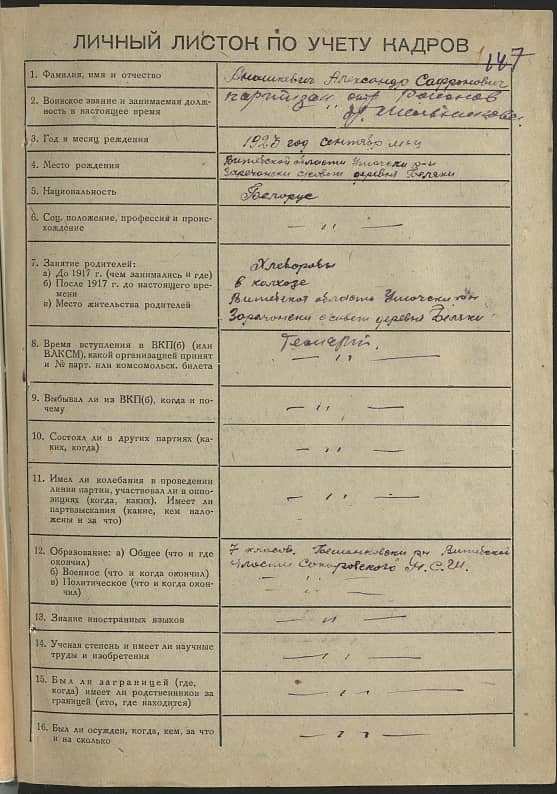 ЛИЧНЫЙ ЛИСТОК ПО УЧЕТУ КАДРОВ
147
1. Фамилия, имя и отчество
Александр Сафронович
2. Воинское звание и занимаемая долж-
ность в настоящее время
партизан
3. Год и месяц рождения
год сентябр м-ц
4. Место рождения
Витебской области Ушачски р-н
Зарачански с/совет деревня Беляки
5. Национальность
Белорус
6. Соц. положение, профессия и проис-
хождение
— „ —
7. Занятие родителей:
а) До 1917 г. (чем занимались и где)
б) После 1917 г. до настоящего вре-
мени
в) Место жительства родителей
Хлеборобы
в колхозе
Витебской области Ушачски р-н
Зарачонски с/совет деревня Беляки
8. Время вступления в ВКП(б) (или
ВЛКСМ), какой организацией принят
и № парт. или комсомольск. билета
— „ —
9. Выбывал ли из ВКП(б), когда и по-
чему
— „ —
10. Состоял ли в других партиях (ка-
ких, когда)
— „ —
11. Имел ли колебания в проведении
линии партии, участвовал ли в оппо-
зициях (когда, каких). Имеет ли
партвзыскания (какие, кем нало-
жены и за что)
— „ —
12. Образование: а) Общее (что и где
окончил)
б) Военное (что и когда окончил)
в) Политическое (что и когда окон-
чил)
7 класов. Бешанковски р-н Витебской
области Н.С.Ш.
— „ —
— „ —
13. Знание иностранных языков
— „ —
14. Ученая степень и имеет ли научные
труды и изобретения
— „ —
15. Был ли заграницей (где,
когда) имеет ли родственников за
границей (кто, где находится)
— „ —
16. Был ли осужден, когда, кем, за что
и на сколько
— „ —